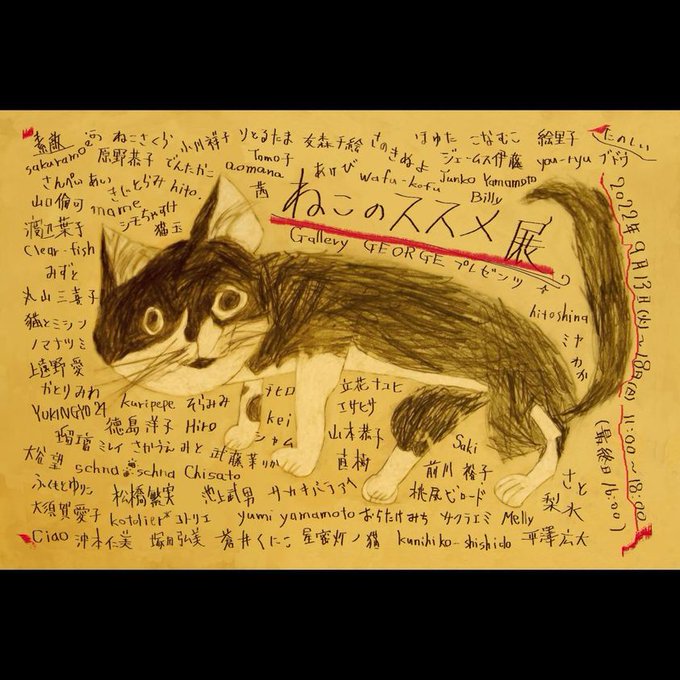 素敵 の ねこさくら 小川祥子 りとるたま 友森手絵 さのきぬよ ほゆた こなむこ 絵里子 たのしい
sakuramoe 原野恭子 でんたかこ Tomo子 ジェームス伊藤 you-ryu ブドウ
さんぺいあい さにとらみ hito. aomana あけび wafu-kofu Junko Yamamoto
山口倫可 mame 茜 Billy
渡辺葉子 シモちゃすけ 猫玉
ねこのススメ展
Clear-fish Gallery GEORGE プレゼンツ
みずと
丸山三喜子 hitoshina
猫とミシン ミヤ
ノマナツミ わか
上遠野愛
かとりみわ ヲヒロ 立花ナコヒ
YUKINGYO21 kuripepe そらみみ エサヒサ
徳島洋子 Hiro kei 山本恭子
瑠璃 ミレイ さかうえみと 武藤茉りか シャム 直樹 Saki
大谷望 schna schna Chisato 前川裕子 さと
ふくもとゆりこ 松橋繁実 池上武男 サカキバラアヘ 桃尻ビロード 梨水
大須賀愛子 kotolier* コトリエ yumi yamamoto おらたけみち サクラエミ Melly
Ciao 沖本仁美 塚田弘美 蒼井くにこ 星密灯ノ猫 kunihiko-shishido 平澤広大
2022年9月13日(火)〜18日(日) 11:00〜18:00
(最終日 16:00)